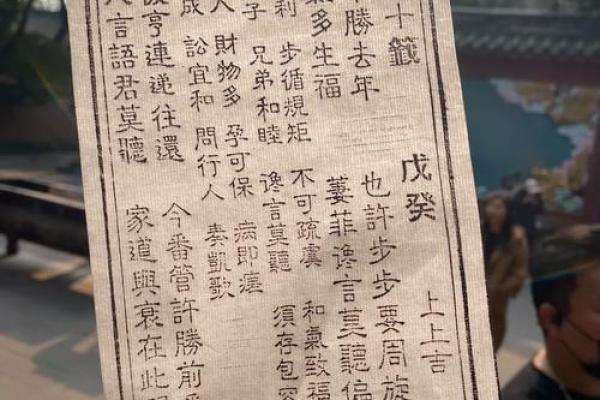 十籤 戊癸 上上吉
勝去年 也許步步要周旋
多生福 萋菲讒言莫聽偏
利 步循規矩 不可疏虞 和氣致福
子 兄弟和睦 讒言莫聽 須存包容
人 財物多 孕可保 病即瘥
成 訟宜和 問行人 奏凱歌
亨連递往還 今番管許勝前
言語君莫聽 家道興衰在此